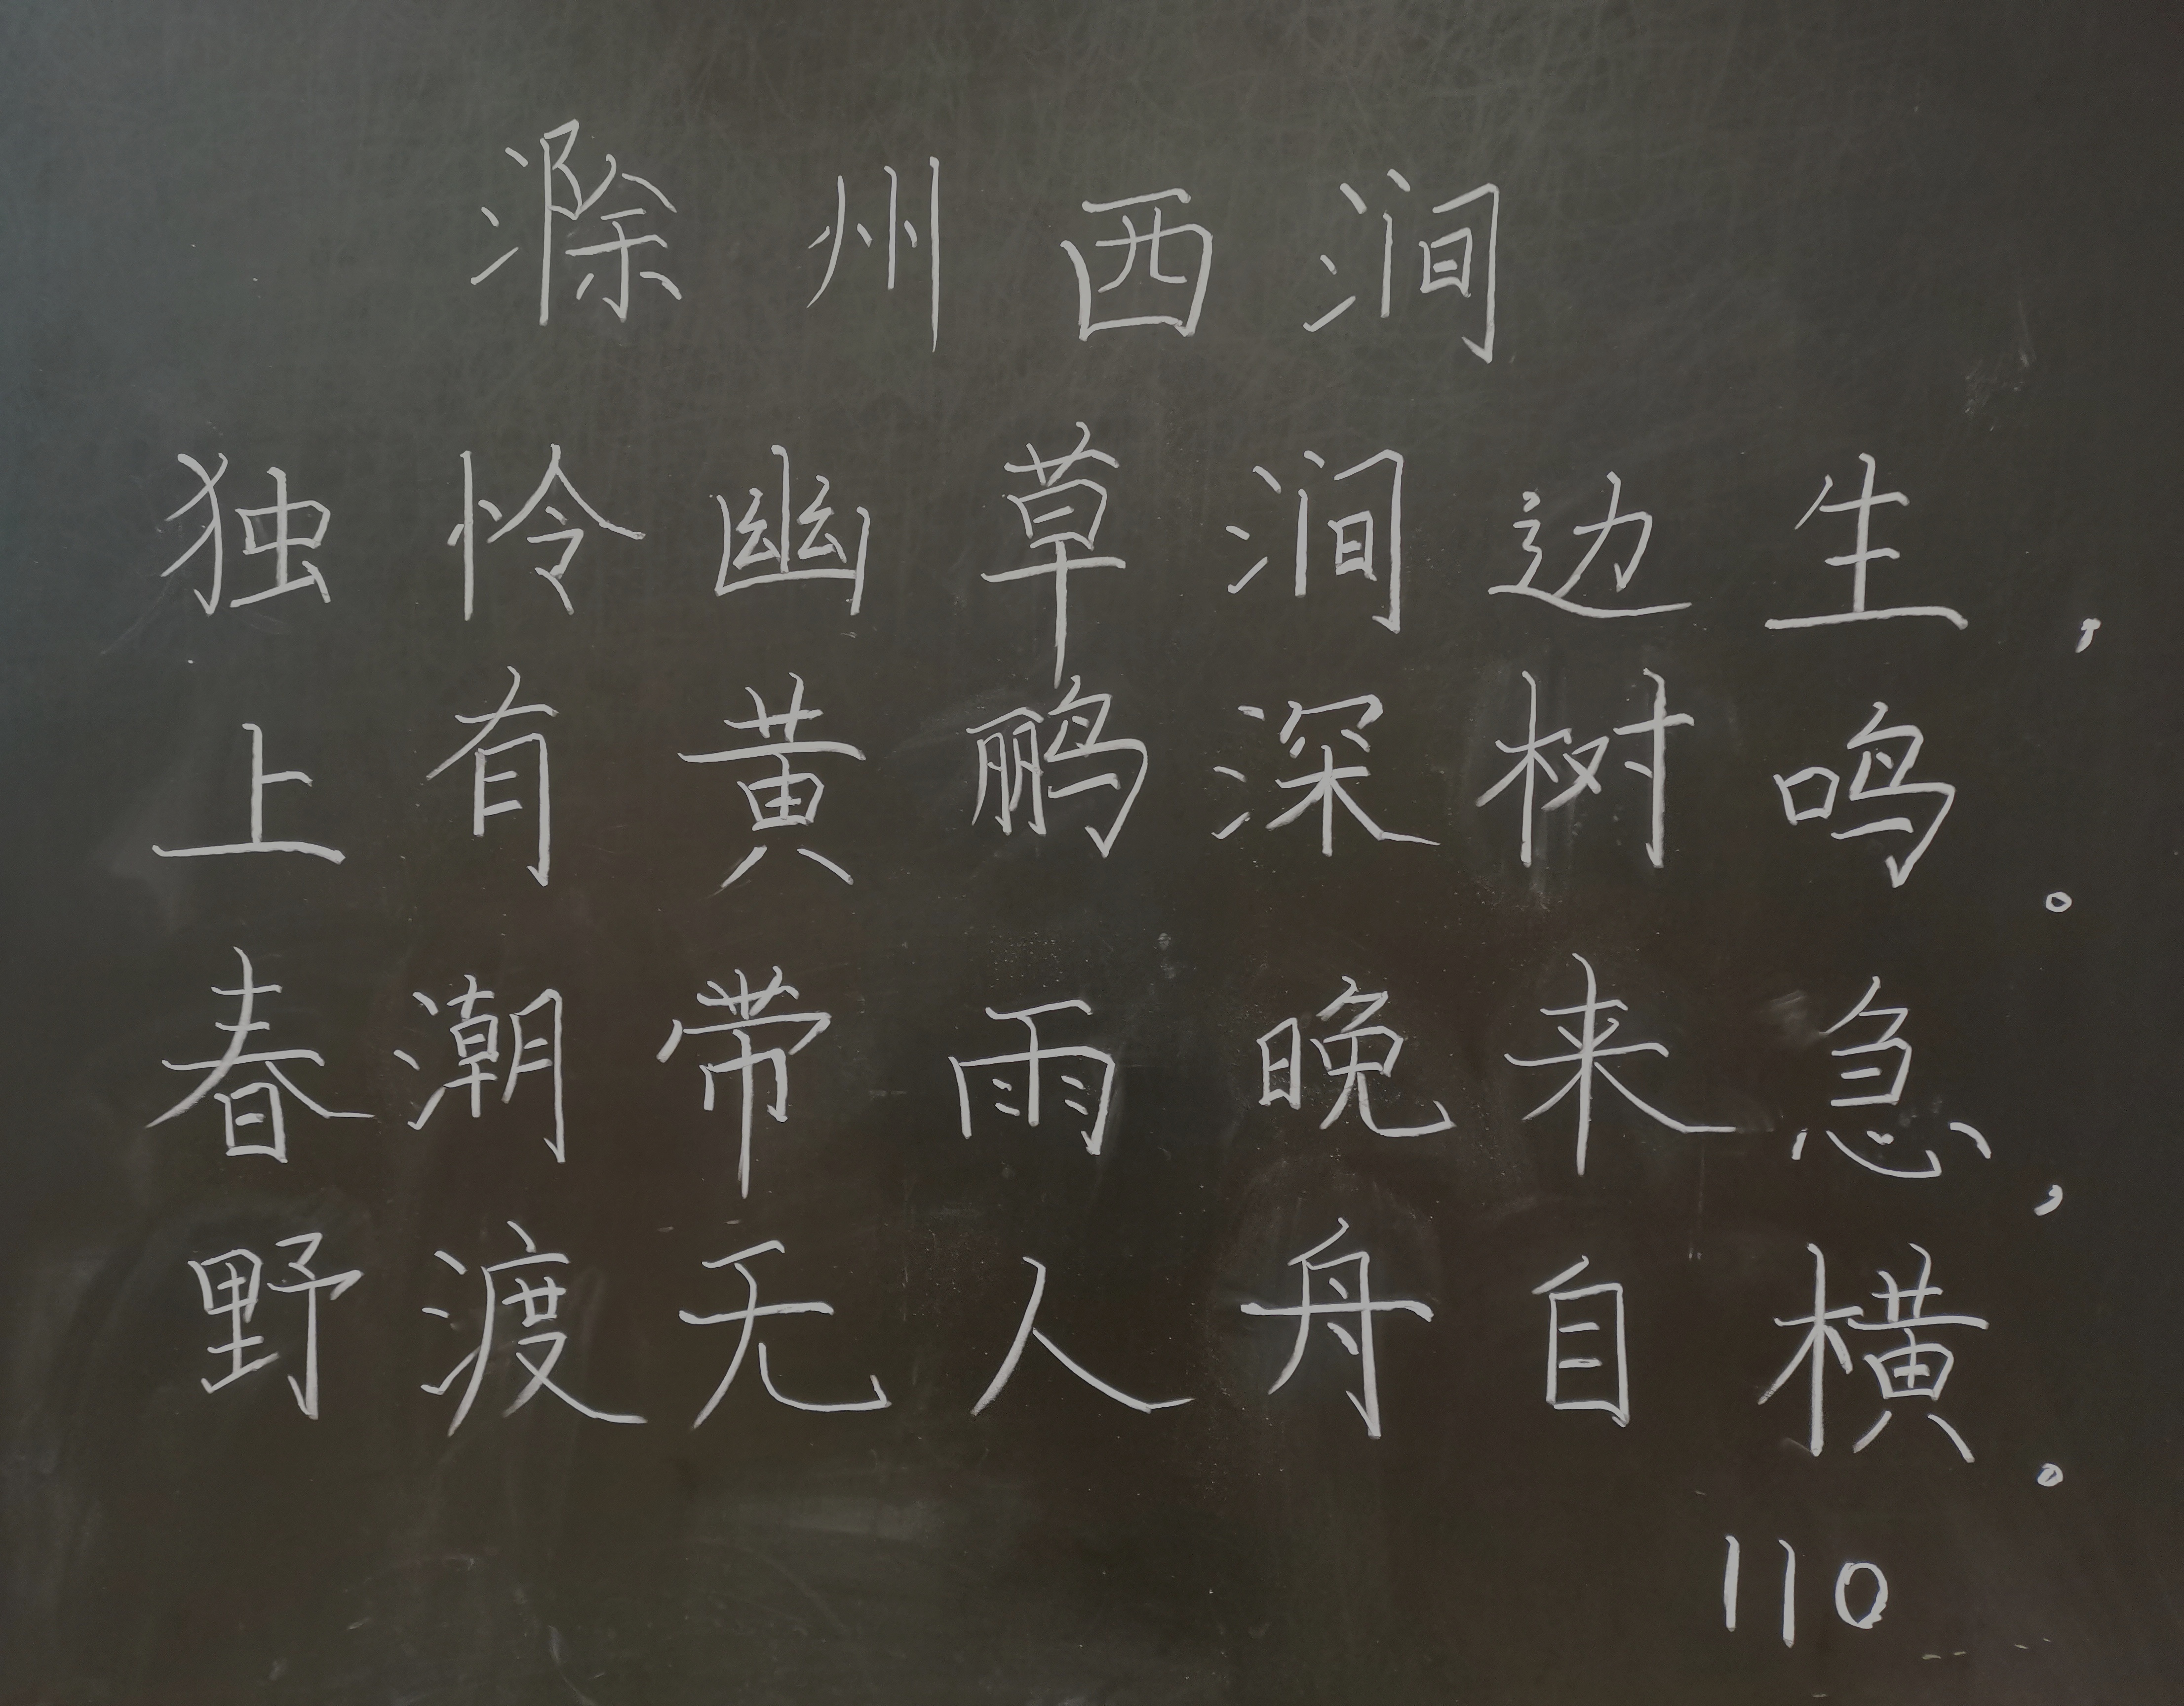 滁州西涧
独怜幽草涧边生，
上有黄鹂深树鸣。
春潮带雨晚来急，
野渡无人舟自横。
110